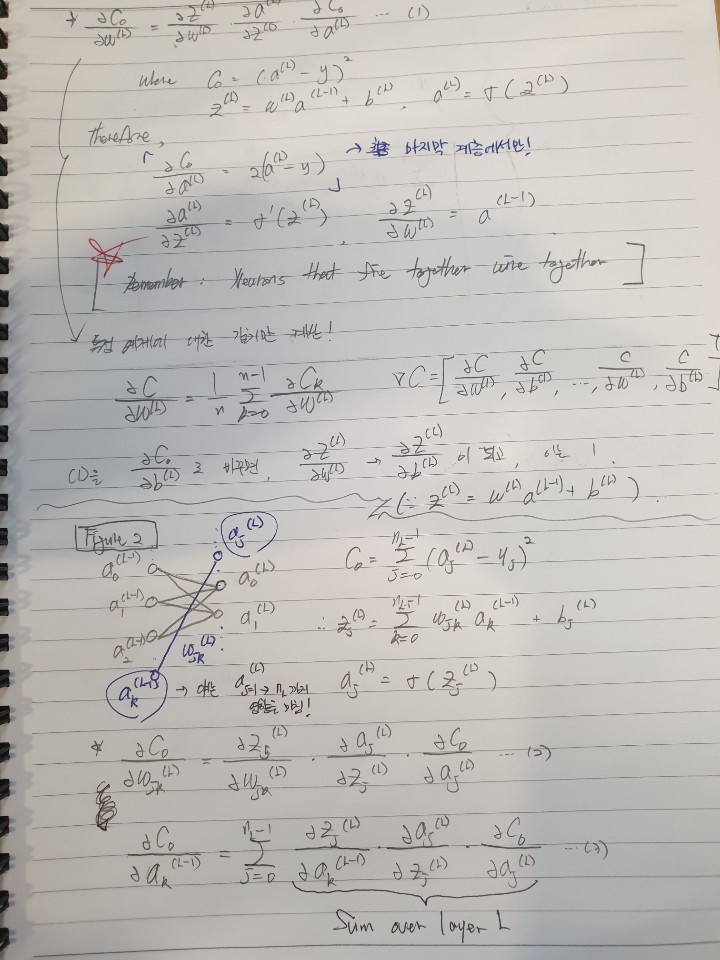 * ∂C₀/∂w^(L) = ∂z^(L)/∂w^(L) · ∂a^(L)/∂z^(L) · ∂C₀/∂a^(L) ··· (1)
where C₀ = (a^(L) - y)²
z^(L) = w^(L) a^(L-1) + b^(L), a^(L) = σ(z^(L))
therefore,
「 ∂C₀/∂a^(L) = 2(a^(L) - y) 」 → 마지막 계층에서만!
∂a^(L)/∂z^(L) = σ'(z^(L)), ∂z^(L)/∂w^(L) = a^(L-1)
[ Remember : Neurons that fire together wire together ]
특정 예제에 대한 계산!
∂C/∂w^(L) = 1/n Σ_{k=0}^{n-1} ∂C_k/∂w^(L) ∇C = [ ∂C/∂w^(1), ∂C/∂b^(1), ···, C/∂w^(L), C/∂b^(L) ]^T
(1)을 ∂C₀/∂b^(L) 로 바꾸면, ∂z^(L)/∂w^(L) → ∂z^(L)/∂b^(L) 이 되고, 이는 1.
(∵ z^(L) = w^(L) a^(L-1) + b^(L)).
Figure 2
a_j^(L)
a₀^(L-1) a₀^(L)
a₁^(L-1) a₁^(L)
a₂^(L-1) w_jk^(L)
a_k^(L-1) → 얘는 a_{j=1→n_L}^(L) 까지
영향을 미침!
C₀ = Σ_{j=0}^{n_L-1} (a_j^(L) - y_j)²
∴ z_j^(L) = Σ_{k=0}^{n_{L-1}-1} w_jk^(L) a_k^(L-1) + b_j^(L)
a_j^(L) = σ(z_j^(L))
* ∂C₀/∂w_jk^(L) = ∂z_j^(L)/∂w_jk^(L) · ∂a_j^(L)/∂z_j^(L) · ∂C₀/∂a_j^(L) ··· (2)
∂C₀/∂a_k^(L-1) = Σ_{j=0}^{n_L-1} ∂z_j^(L)/∂a_k^(L-1) · ∂a_j^(L)/∂z_j^(L) · ∂C₀/∂a_j^(L) ··· (3)
Sum over layer L